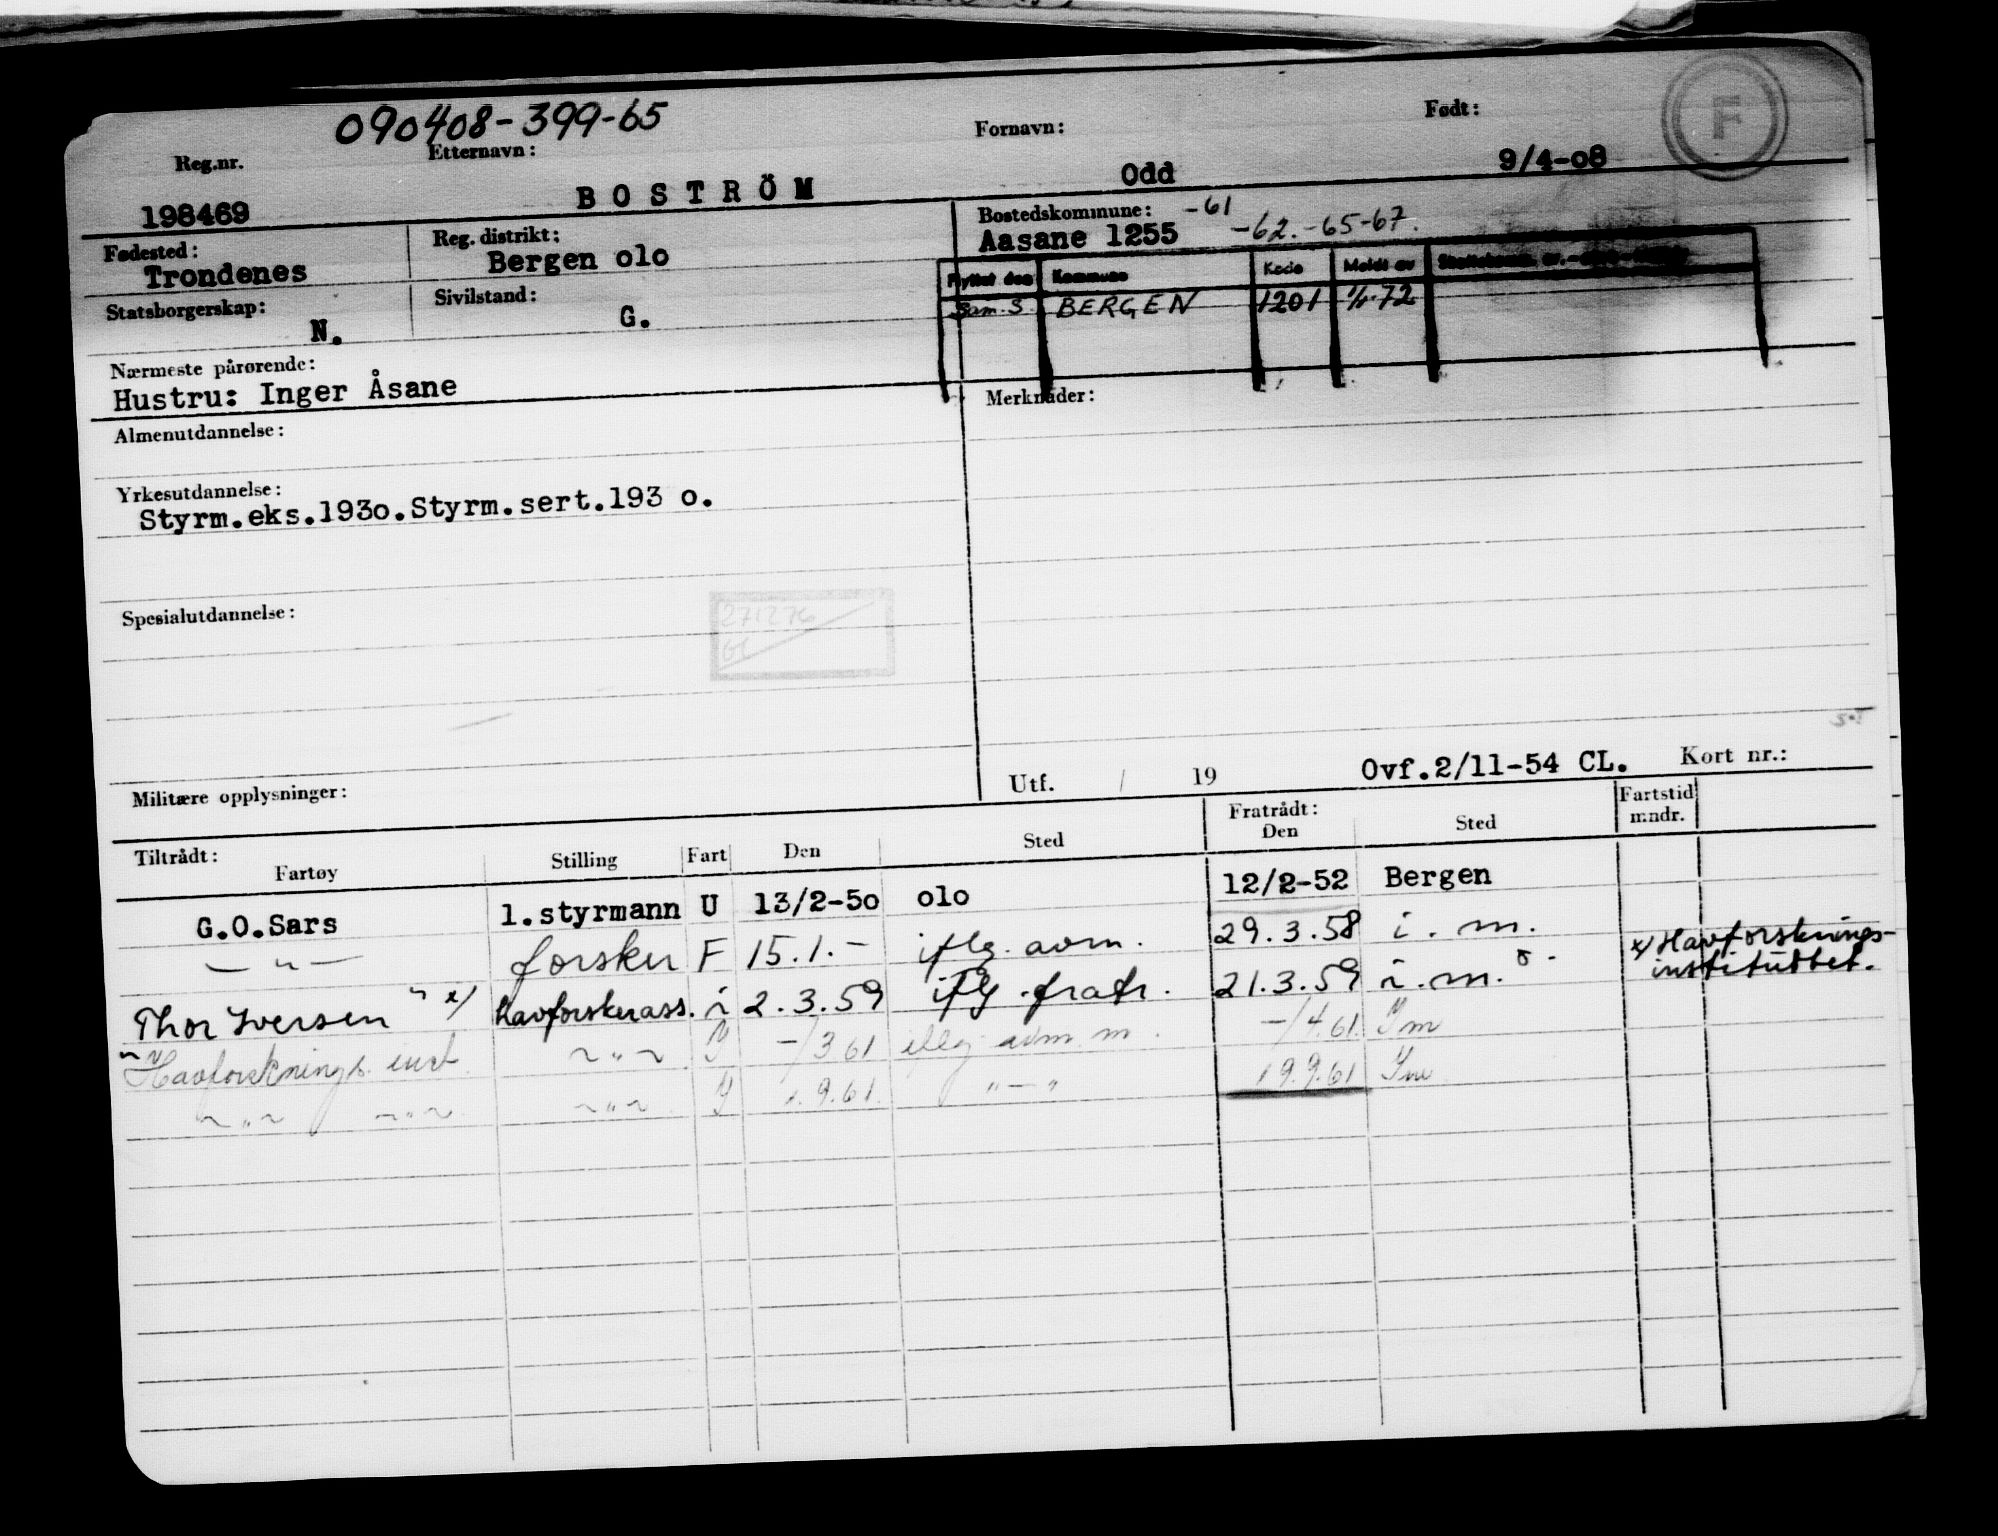 090408-399-65
Reg.nr. Etternavn: Fornavn: Født:
198469 BOSTRÖM Odd 9/4-08
F
Fødested: Reg. distrikt: Bostedskommune: -61
Trondenes Bergen olo Aasane 1255 -62.-65-67.
Statsborgerskap: Sivilstand: Flyttet den Kommune Kode Meldt av
N. G. Sam. S. BERGEN 1201 1/1-72
Nærmeste pårørende:
Hustru: Inger Åsane
Merknader:
Almenutdannelse:
Yrkesutdannelse:
Styrm.eks.193o.Styrm.sert.193 o.
Spesialutdannelse:
271276
GL
Utf. / 19 Ovf.2/11-54 CL. Kort nr.:
Militære opplysninger:
Tiltrådt: Fratrådt: Fartstid
Fartøy Stilling Fart Den Sted Den Sted mndr.
G.O.Sars 1.styrmann U 13/2-5o olo 12/2-52 Bergen
— " — forsker F 15.1.- iflg. avm. 29.3.58 i. m.
Thor Iversen " x/ havforskerass. i 2.3.59 iflg. fratr. 21.3.59 i.m. x/ Havforsknings-
institüttet.
Havforsknings. inst. ~ " ~ -/3 61 iflg avm. m. -/4.61. Im
~ " ~ ~ " ~ ~ " ~ 1.9.61. " — " 19.9.61